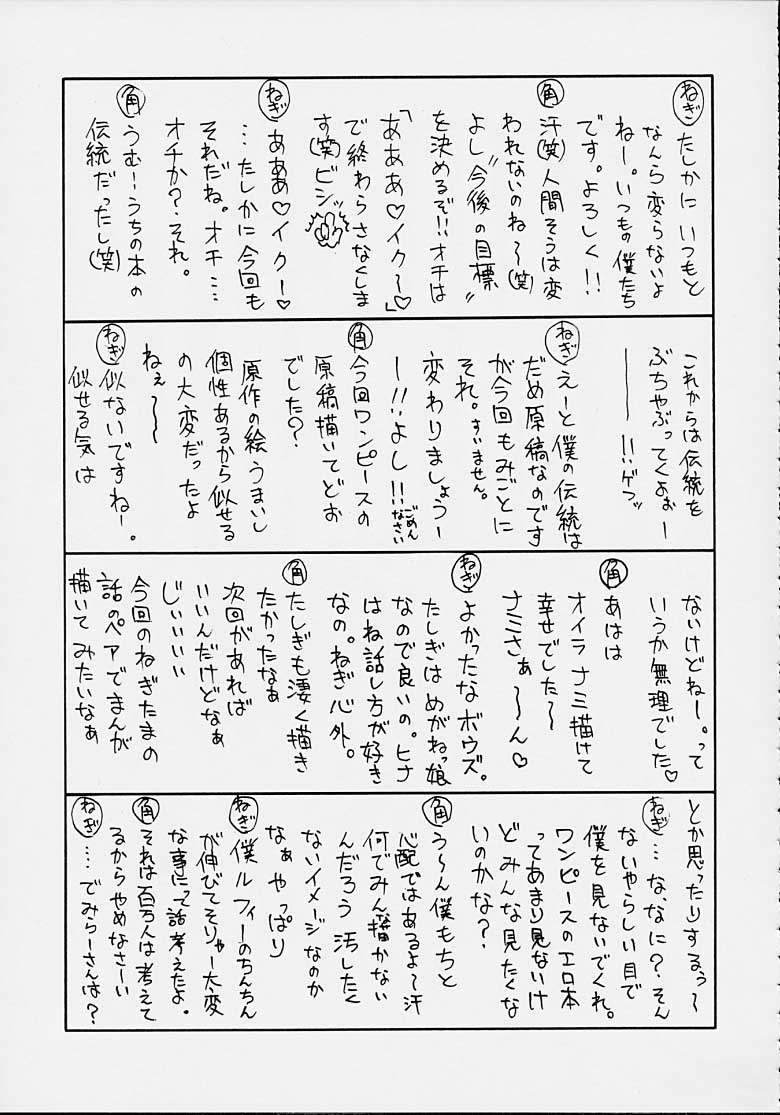 ねぎ たしかにいつもと
なんら変らないよ
ねー。いつもの僕たち
です。よろしく!!
角 汗(笑)人間そうは変
われないのね〜(笑)
よし"今後の目標"
を決めるぞ!!オチは
「あああ♡イク〜♡」
で終わらさなくしま
す(笑)ビシッ
ねぎ あああ♡イクー♡
…たしかに今回も
それだね。オチ…
オチか?それ。
角 うむーうちの本の
伝統だったし(笑)
これからは伝統を
ぶちゃぶってくよぉー
ーーー!!ゲフッ
ねぎ えーと僕の伝統は
だめ原稿なのです
が今回もみごとに
それ。すいません。
変わりましょうー
ー!!よし!!ごめんなさい
角 今回ワンピースの
原稿描いてどお
でした?
原作の絵うまいし
個性あるから似せる
の大変だったよ
ねぇ〜〜
ねぎ 似ないですねー。
似せる気は
ないけどねー。って
いうか無理でした♡
角 あはは
オイラナミ描けて
幸せでした〜
ナミさぁ〜〜ん♡
ねぎ よかったなボウズ。
たしぎはめがねっ娘
なので良いの。ヒナ
はね話し方が好き
なの。ねぎ心外。
角 たしぎも凄く描き
たかったなぁ
次回があれば
いいんだけどなぁ
じぃぃぃぃ
今回のねぎたまの
話のペアでまんが
描いてみたいなぁ
とか思ったりするぅ〜
ねぎ …な、なに?そん
ないやらしい目で
僕を見ないでくれ。
ワンピースのエロ本
ってあまり見ないけ
どみんな見たくな
いのかな?
角 う〜ん僕もちと
心配ではあるよ〜汗
何でみん描かない
んだろう汚したく
ないイメージなのか
なぁやっぱり
ねぎ 僕ルフィーのちんちん
が伸びてそりゃー大変
な事にって話考えたよ。
角 それは百万人は考えて
るからやめなさーい
ねぎ …でみらーさんは?